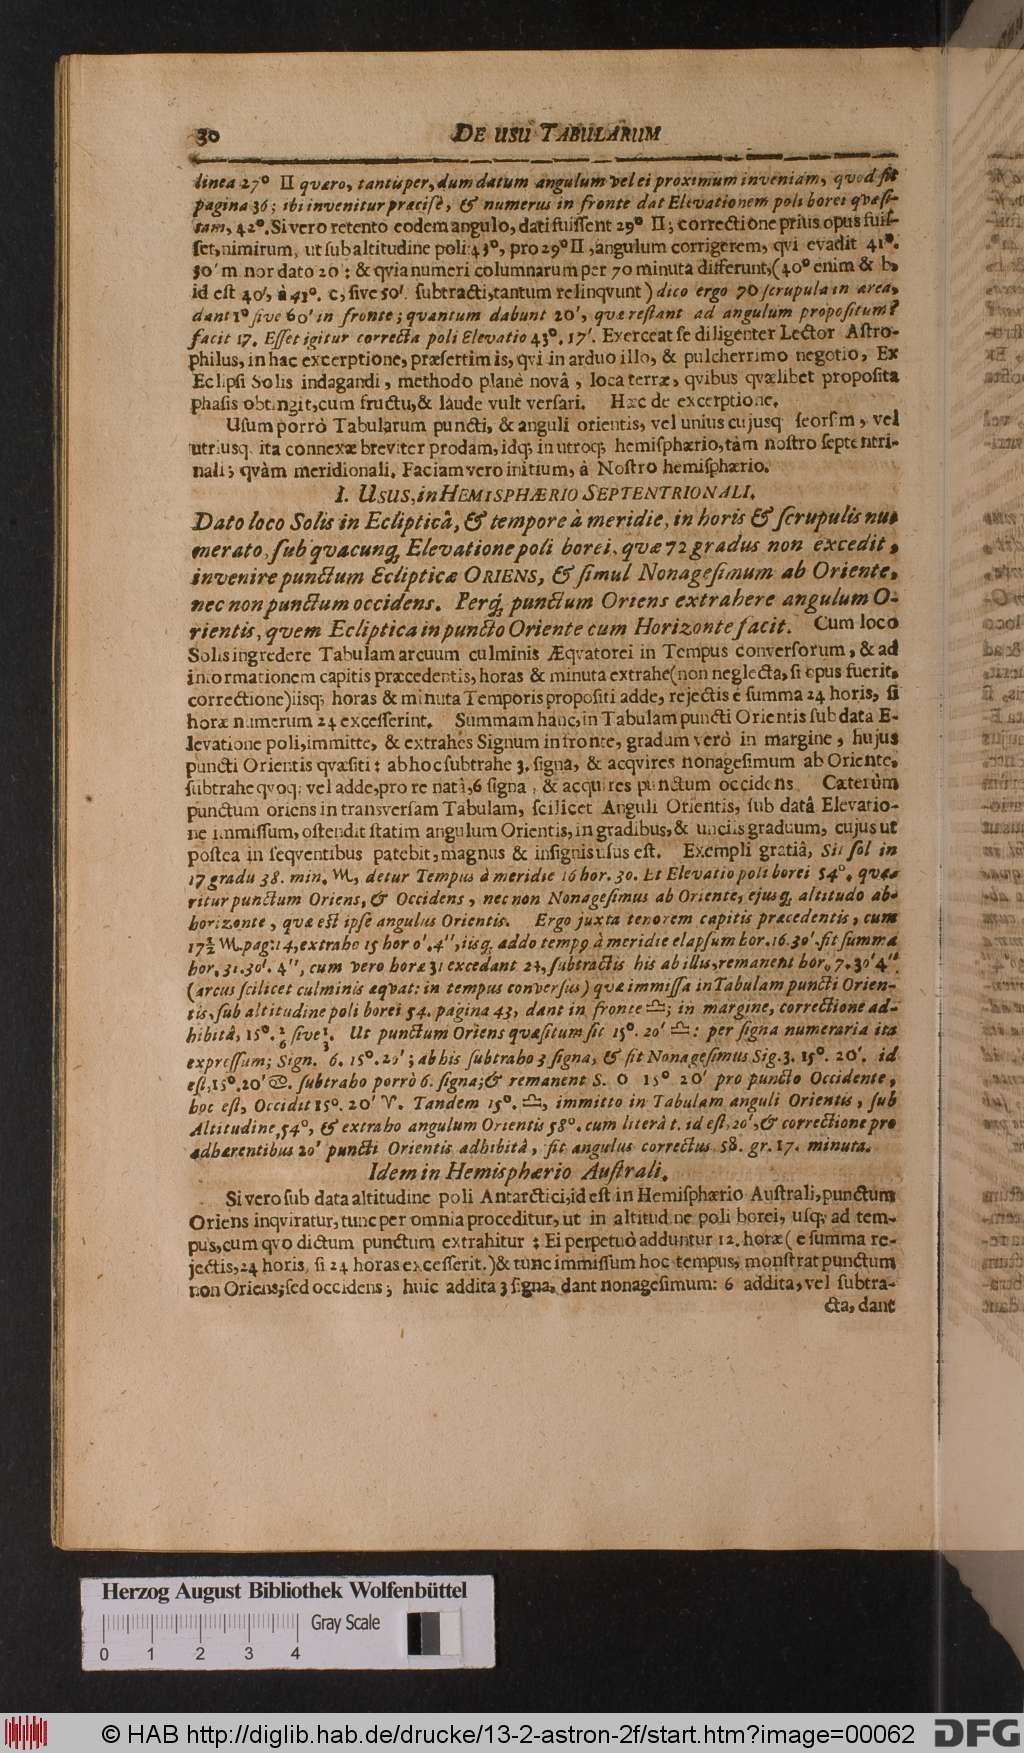 30 DE USU TABULARUM
linea 27° ♊ quæro, tantisper, dum datum angulum vel ei proximum inveniam, quod fit
pagina 36; ibi invenitur præcisè, & numerus in fronte dat Elevationem poli borei quæsi-
tam, 42°. Si vero retento eodem angulo, dati fuissent 29° ♊; correctione prius opus fuis-
set, nimirum, ut sub altitudine poli 43°, pro 29° ♊, angulum corrigerem, qvi evadit 41°.
50′ m nor dato 20′: & qvia numeri columnarum per 70 minuta differunt, (40° enim & b,
id est 40′, à 41°. c, sive 50′. subtracti, tantum relinqvunt) dico ergo 70 scrupula in area,
dant 1° sive 60′ in fronte; quantum dabunt 20′, quæ restant ad angulum propositum?
facit 17. Esset igitur correcta poli Elevatio 43°. 17′. Exerceat se diligenter Lector Astro-
philus, in hac excerptione, præsertim is, qvi in arduo illo, & pulcherrimo negotio, Ex
Eclipsi Solis indagandi, methodo planè novâ, loca terræ, qvibus qvælibet proposita
phasis obtingit, cum fructu, & laude vult versari. Hæc de excerptione.
Usum porrò Tabularum puncti, & anguli orientis, vel unius cujusq; seorsim, vel
utriusq; ita connexæ breviter prodam, idq; in utroq; hemisphærio, tàm nostro septentri-
nali; qvàm meridionali. Faciam vero initium, à Nostro hemisphærio.
I. USUS, in HEMISPHÆRIO SEPTENTRIONALI.
Dato loco Solis in Eclipticâ, & tempore à meridie, in horis & scrupulis nu-
merato, sub quacunq; Elevatione poli borei, quæ 72 gradus non excedit,
invenire punctum Eclipticæ ORIENS, & simul Nonagesimum ab Oriente,
nec non punctum occidens. Perq; punctum Oriens extrahere angulum O-
rientis, quem Ecliptica in puncto Oriente cum Horizonte facit. Cum loco
Solis ingredere Tabulam arcuum culminis Æqvatorei in Tempus conversorum, & ad
informationem capitis præcedentis, horas & minuta extrahe (non neglecta, si opus fuerit,
correctione) iisq; horas & minuta Temporis propositi adde, rejectis è summa 24 horis, si
horæ numerum 24 excesserint. Summam hanc, in Tabulam puncti Orientis sub data E-
levatione poli, immitte, & extrahes Signum in fronte, gradum verò in margine, hujus
puncti Orientis qvæsiti: ab hoc subtrahe 3. signa, & acqvires nonagesimum ab Oriente.
subtrahe qvoq; vel adde, pro re natâ, 6 signa, & acquires punctum occidens. Cæterùm
punctum oriens in transversam Tabulam, scilicet Anguli Orientis, sub datâ Elevatio-
ne immissum, ostendit statim angulum Orientis, in gradibus, & unciis graduum, cujus ut
postea in seqventibus patebit, magnus & insignis usus est. Exempli gratiâ, Sit sol in
17 gradu 38. min. ♏, detur Tempus à meridie 16 hor. 30. Et Elevatio poli borei 54°. quæ-
ritur punctum Oriens, & Occidens, nec non Nonagesimus ab Oriente, ejusq; altitudo ab
horizonte, quæ est ipse angulus Orientis. Ergo juxta tenorem capitis præcedentis, cum
17 ⅔ ♏. pag: 14, extraho 15 hor 0′. 4″, iisq; addo tempq à meridie elapsum hor. 16. 30′. fit summa
hor. 31. 30′. 4″, cum vero horæ 31 excedant 24, subtractis his ab illis, remanent hor. 7. 30′ 4″
(arcus scilicet culminis æqvat: in tempus conversus) quæ immissa in Tabulam puncti Orien-
tis, sub altitudine poli borei 54. pagina 43, dant in fronte ♎; in margine, correctione ad-
hibitâ, 15°. 2/6 sive 1/3. Ut punctum Oriens quæsitum sit 15°. 20′ ♎: per signa numeraria ita
expressum; Sign. 6. 15°. 20′; ab his subtraho 3 signa, & fit Nonagesimus Sig. 3. 15°. 20′. id
est, 15°. 20′ ♋. subtraho porrò 6. signa; & remanent S. 0 15° 20′ pro puncto Occidente,
hoc est, Occidit 15°. 20′ ♈. Tandem 15°. ♎, immitto in Tabulam anguli Orientis, sub
Altitudine, 54°, & extraho angulum Orientis 58°. cum literâ t. id est, 20′, & correctione pro
adhærentibus 20′ puncti Orientis adhibitâ, fit angulus correctus 58. gr. 17. minuta.
Idem in Hemisphærio Australi.
Si vero sub data altitudine poli Antarctici; id est in Hemisphærio Australi, punctum
Oriens inqviratur, tunc per omnia proceditur, ut in altitudine poli borei, usq; ad tem-
pus, cum qvo dictum punctum extrahitur: Ei perpetuò adduntur 12. horæ (è summa re-
jectis, 24 horis, si 24 horas excesserit.) & tunc immissum hoc tempus, monstrat punctum
non Oriens; sed occidens; huic addita 3 signa, dant nonagesimum: 6 addita, vel subtra-
cta, dant
Herzog August Bibliothek Wolfenbüttel
Gray Scale
0 1 2 3 4
© HAB http://diglib.hab.de/drucke/13-2-astron-2f/start.htm?image=00062
DFG